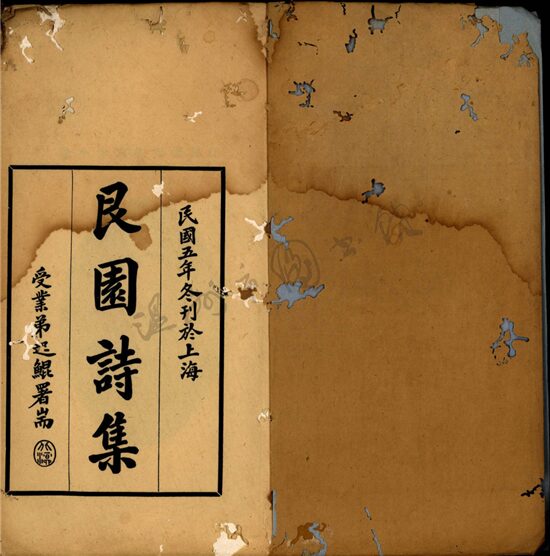 民國五年冬刊於上海
艮園詩集
受業弟起鯤署耑